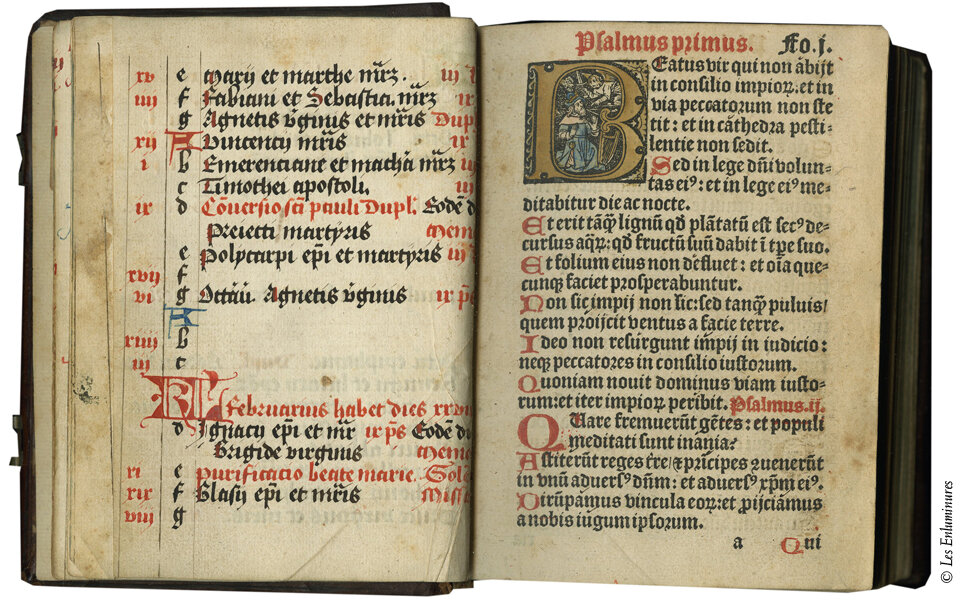 xv e Marij et marthe mr̄z. iij
iiij f Fabiani et Sebastia. mr̄z ix
g Agnetis v̄ginis et mr̄is Dupl
xij A Vincencij mr̄is ix
i b Emerenciane et macha mr̄z iij
c Timothei apostoli. iij
ix d Cōversio scī pauli Dupl. Eodē d
Preiecti martyris Mem
e Polycarpi ep̄i et martyris iij
xvij f
vi g Octāū Agnetis v̄ginis ix ps̄
A
xiiij b
iij c
KL Februarius habet dies xxvii
d Ignacij ep̄i et mr̄ ix ps̄ Eodē di
Brigide virginis Mem
xi e Purificatio beate marie. Sole
xix f Blasij ep̄i et mr̄is Missa
viij g
Psalmus primus. Fo. j.
Beatus vir qui non ābijt
in consilio impioꝝ: et in
via peccatorum non ste
tit: et in cāthedra pesti-
lentie non sedit.
Sed in lege dn̄i volun-
tas eiꝰ: et in lege eiꝰ me-
ditabitur die ac nocte.
Et erit tāꝗ̄ lignū qd̄ plātatū est secꝰ de-
cursus aꝗꝝ: qd̄ fructū suū dabit ī tp̄e suo.
Et folium eius non defluet: et oīa que-
cunꝗ faciet prosperabuntur.
Non sic impij non sic: sed tanꝗ̄ puluis/
quem proijcit ventus a facie terre.
Ideo non resurgunt impij in iudicio:
neꝗ peccatores in consilio iustorum.
Quoniam nouit dominus viam iusto-
rum: et iter impioꝝ peribit. Psalmus.ij.
Quare fremuerūt gētes: et populi
meditati sunt inania?
Astiterūt reges tr̄e/ ⁊ prīcipes ꝯuenerūt
in vnū aduersꝰ dn̄m: et aduersꝰ xp̄m eiꝰ.
Dirūpāmus vincula eoꝝ: et ꝓijciāmus
a nobis iugum ipsorum.
a Qui
© Les Enluminures